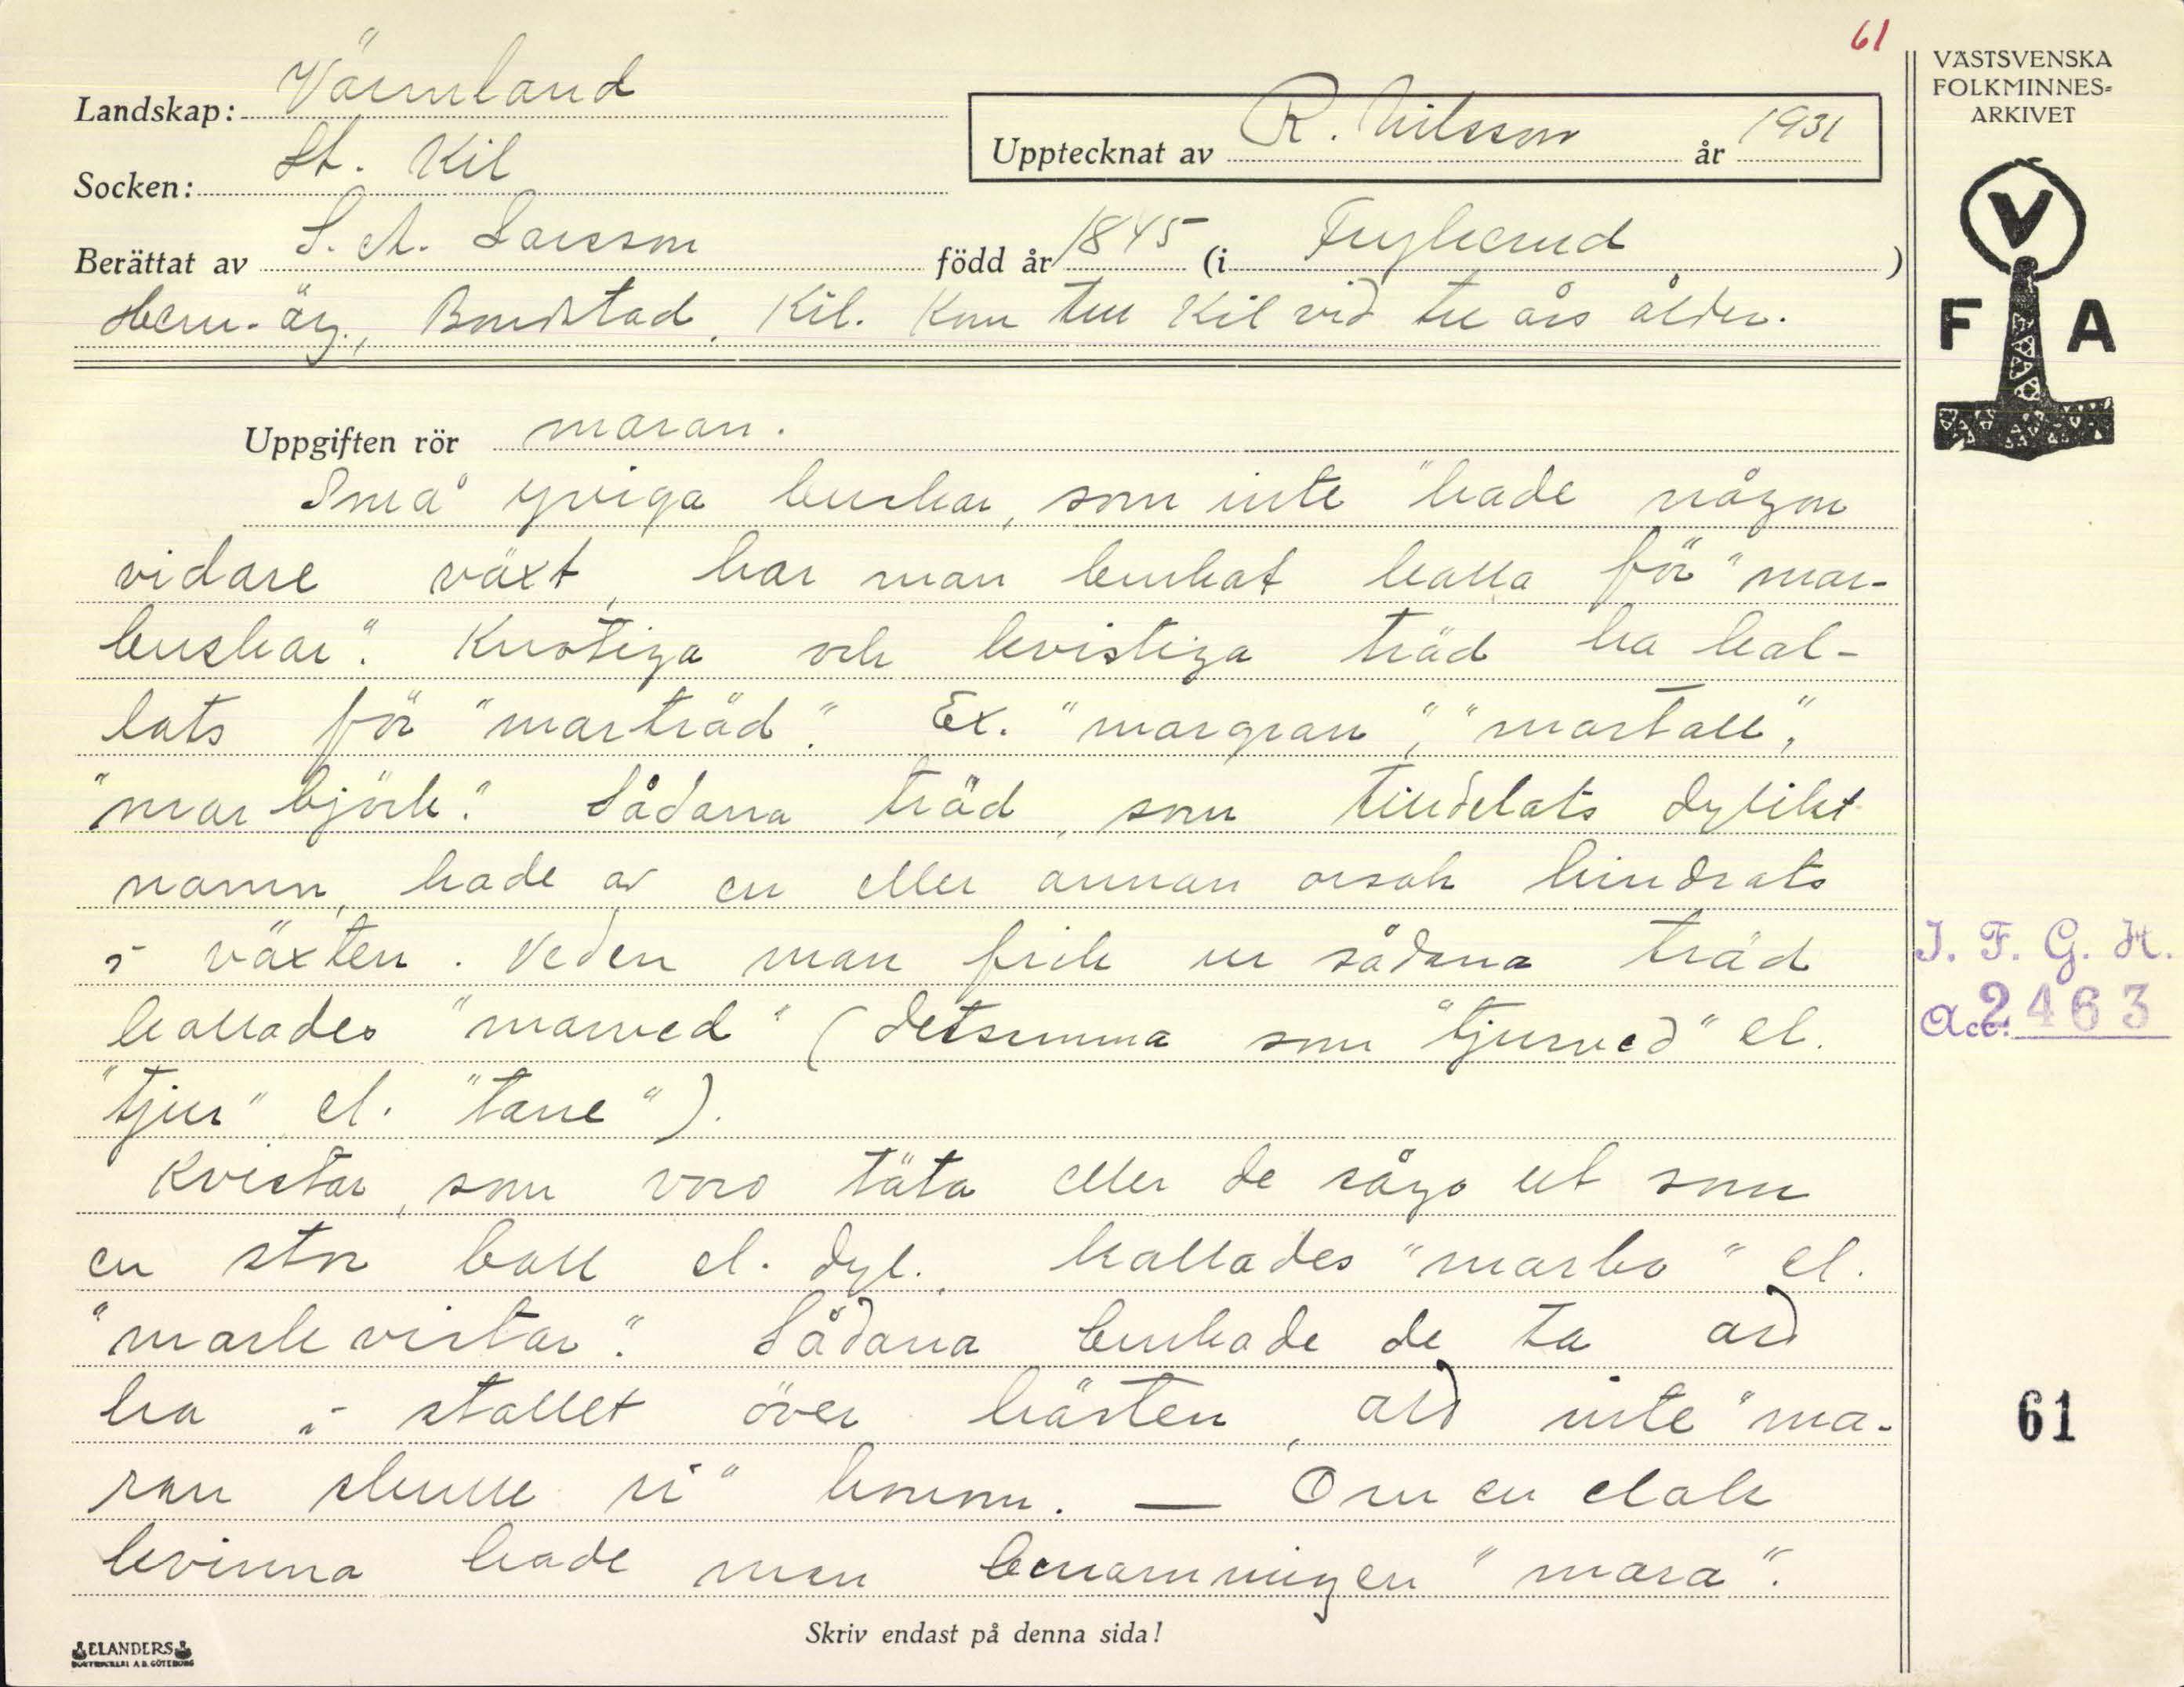 61
VÄSTSVENSKA
FOLKMINNES-
ARKIVET
Landskap: Värmland
Upptecknat av R. Nilsson år 1931
Socken: St. Kil
Berättat av S. A. Larsson född år 1845 (i Frykerud)
Hem. äg., Bondstad, Kil. Kom till Kil vid tre års ålder.
V
F A
Uppgiften rör maran.
Små yviga buskar, som inte "hade någon
vidare växt, har man brukat kalla för "mar-
buskar". Knotiga och kvistiga träd ha kal-
lats för "marträd". Ex. "margran", "martall",
"marbjörk". Sådana träd, som tilldelats dylikt
namn, hade av en eller annan orsak hindrats
i växten. Veden man fick ur sådana träd
kallades "marved" (detsamma som "tjurved" el.
"tjur" el. "tane").
Kvistar, som voro täta eller de sågo ut som
en stor boll el. dyl. kallades "marbo" el.
"markvistar". Sådana brukade de ta ått
ha i stallet över hästen, ått inte "ma-
ran skulle ri" honom. — Om en elak
kvinna hade man benämningen "mara".
I. F. G. H.
Acc. 2463
61
Skriv endast på denna sida!
ELANDERS
BOKTRYCKERI A.B. GÖTEBORG